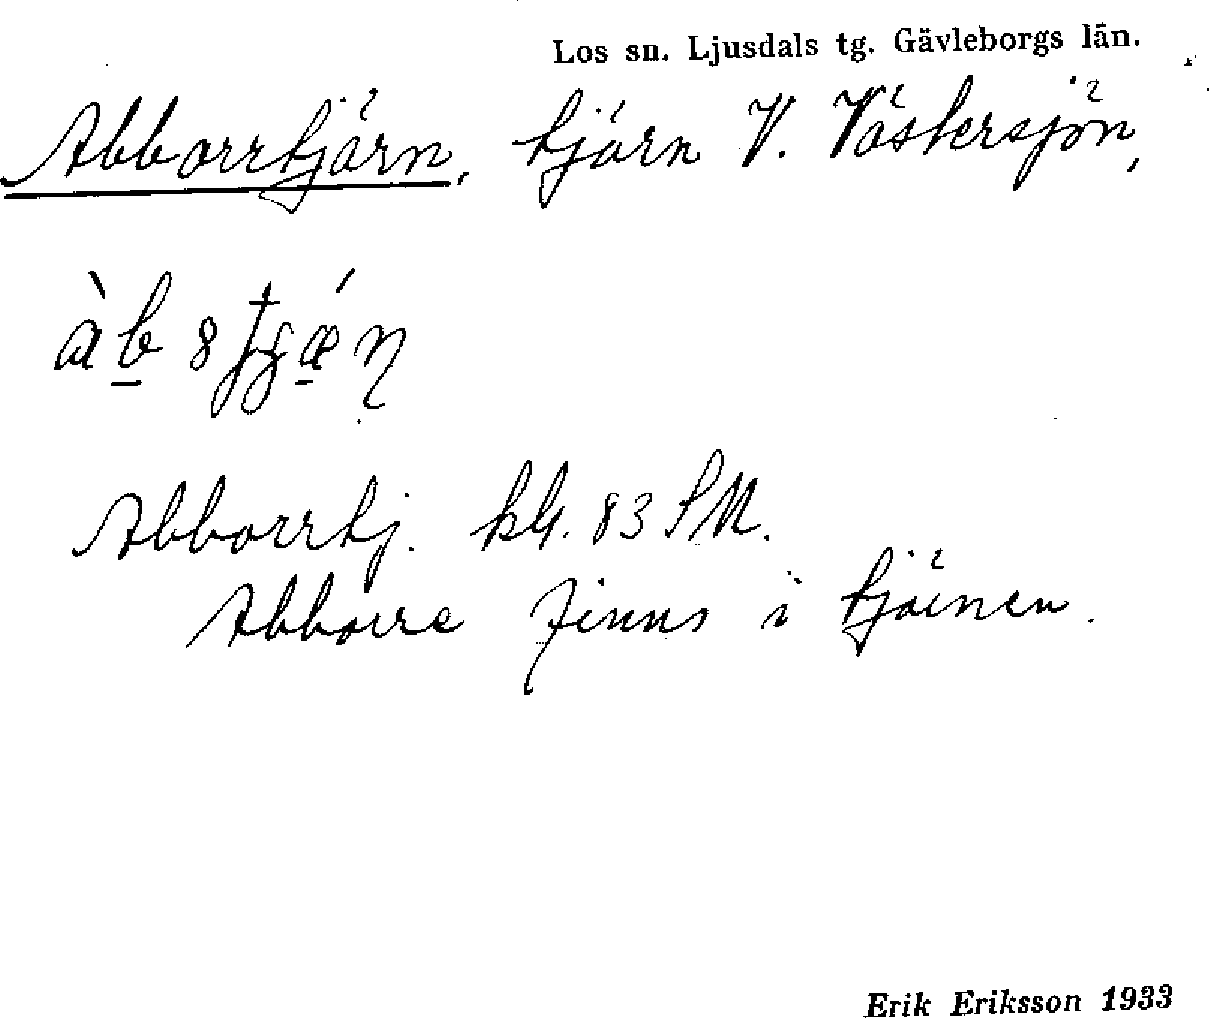 Los sn. Ljusdals tg. Gävleborgs län.
Abborrtjärn, tjärn V. Västersjön,
Abborrtj. kbl. 83 SM.
Abborre finns i tjärnen.
Erik Eriksson 1933